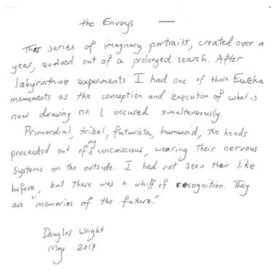 the Envoys
This series of imaginary portraits, created over a
year, evolved out of a prolonged search. After
labyrinthine experiments I had one of those Eureka
moments as the conception and execution of what is
now drawing no. 1 occured simultaneously.
Primordial, tribal, futuristic, humanoid, the heads
proceeded out of my unconscious, wearing their nervous
systems on the outside. I had not seen their like
before, but there was a whiff of recognition. They
are "memories of the future."
Douglas Wright
May 2017